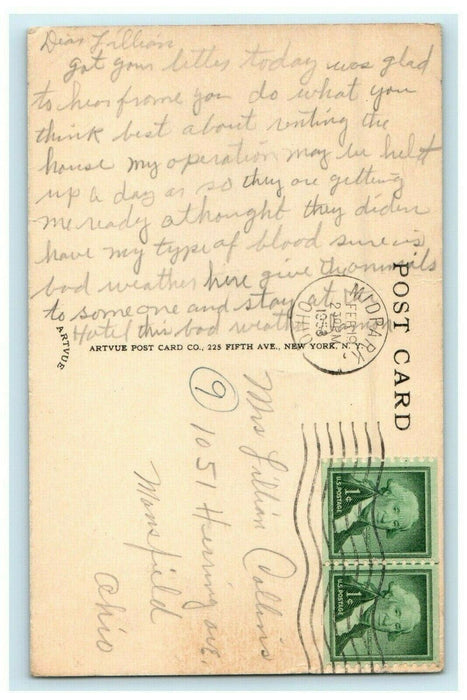 Dear Lillian
got your letter today was glad
to hear frome you do what you
think best about renting the
house my operation may be held
up a day ar so they are getting
me ready athought they diden
have my type af blood sure is
bad weather here give the animals
to someone and stay at
Hotel this bad weather
ARTVUE
ARTVUE POST CARD CO., 225 FIFTH AVE., NEW YORK, N.Y.
POST CARD
FEB 19
2 PM
1958
OHIO
Mrs Lillian Collins
9 1051 Herring ave.
Mansfield
Ohio
U.S. POSTAGE 1¢
U.S. POSTAGE 1¢